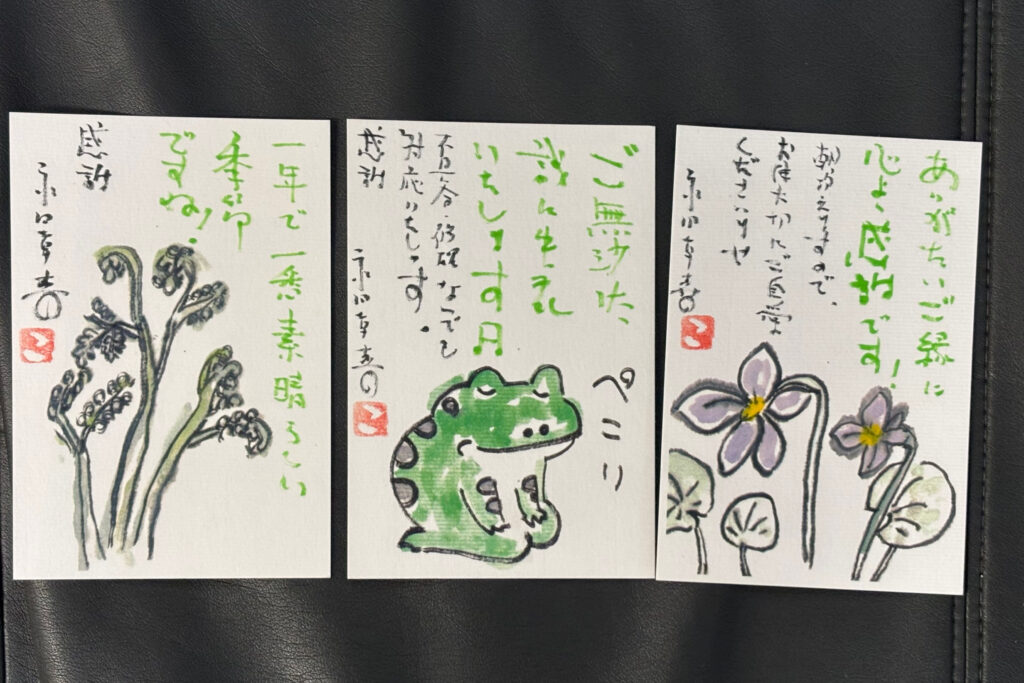 一年で一番素晴らしい
季節
ですね!
感謝
ご無沙汰、
誠に失礼
いたします
修理なんでも
対応いたします。
感謝
ぺこり
ありがたいご縁に
心より感謝です!
冷えますので、
ご自愛
くださいませ